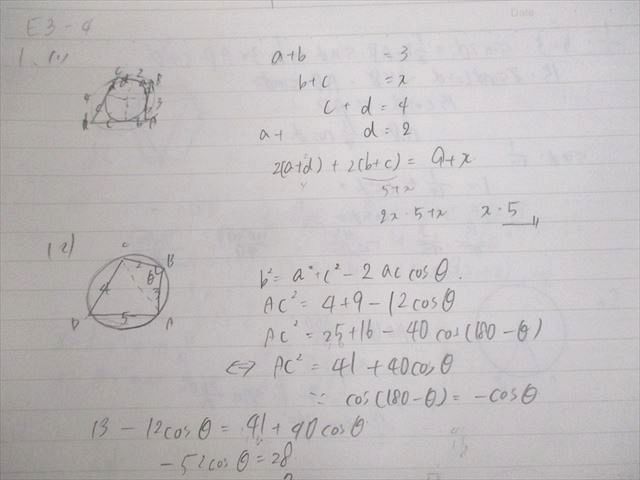 E3-4
1. (1)
a+b = 3
b+c = x
c+d = 4
a+ d = 2
2(a+d) + 2(b+c) = 9+x
5+x
2x = 5+x x = 5
(2)
b² = a²+c² - 2accosθ.
AC² = 4+9-12cosθ
AC² = 25+16-40cos(180-θ)
⇔ AC² = 41+40cosθ
∵ cos(180-θ) = -cosθ
13-12cosθ = 41+40cosθ
-52cosθ = 28